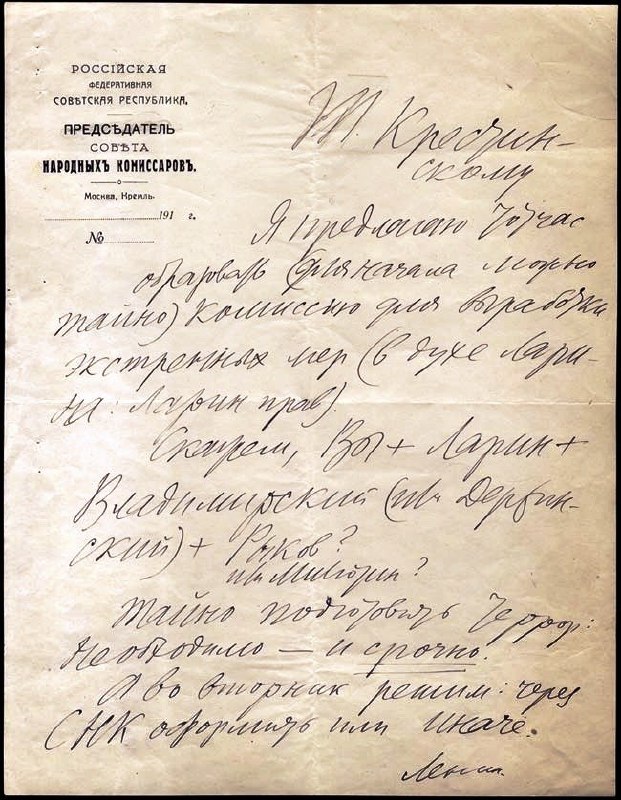 РОССІЙСКАЯ
ФЕДЕРАТИВНАЯ
СОВѢТСКАЯ РЕСПУБЛИКА.
ПРЕДСѢДАТЕЛЬ
СОВѢТА
НАРОДНЫХЪ КОМИССАРОВЪ.
Москва, Кремль.
191 г.
№
Т. Крестин-
скому
Я предлагаю тотчас
образовать (для начала можно
тайно) комиссию для выработки
экстренных мер (в духе Лари-
на: Ларин прав).
Скажем, Вы + Ларин +
Владимирский (или Дзержин-
ский) + Рыков?
или Милютин?
Тайно подготовить террор:
необходимо — и срочно.
А во вторник решим: через
СНК оформить или иначе.
Ленин.